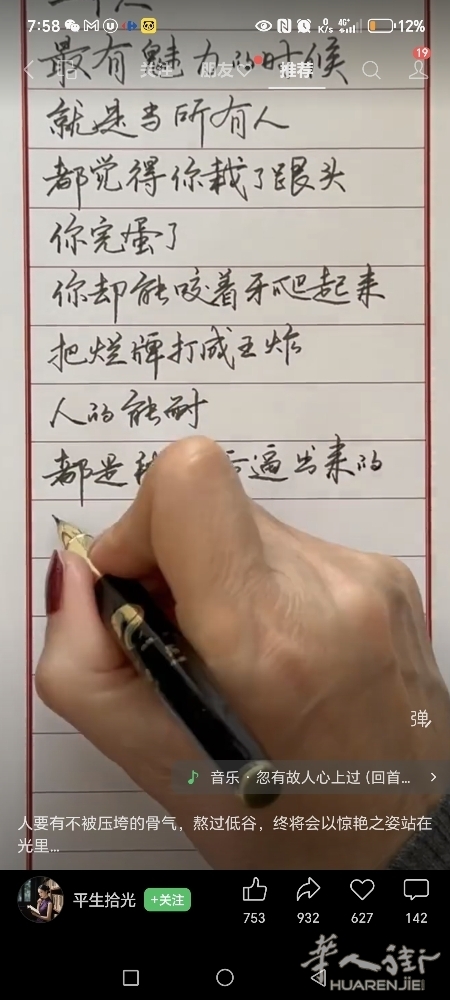 一个人
7:58
4G+
K/s
12%
最有魅力的时候
关注 朋友 推荐
19
就是当所有人
都觉得你栽了跟头
你完蛋了
你却能咬着牙爬起来
把烂牌打成王炸
人的能耐
都是被 后逼出来的
弹
音乐·忽有故人心上过 (回首...
人要有不被压垮的骨气，熬过低谷，终将会以惊艳之姿站在
光里...
平生拾光
+关注
753
932
627
142
华人街
HUARENJIE